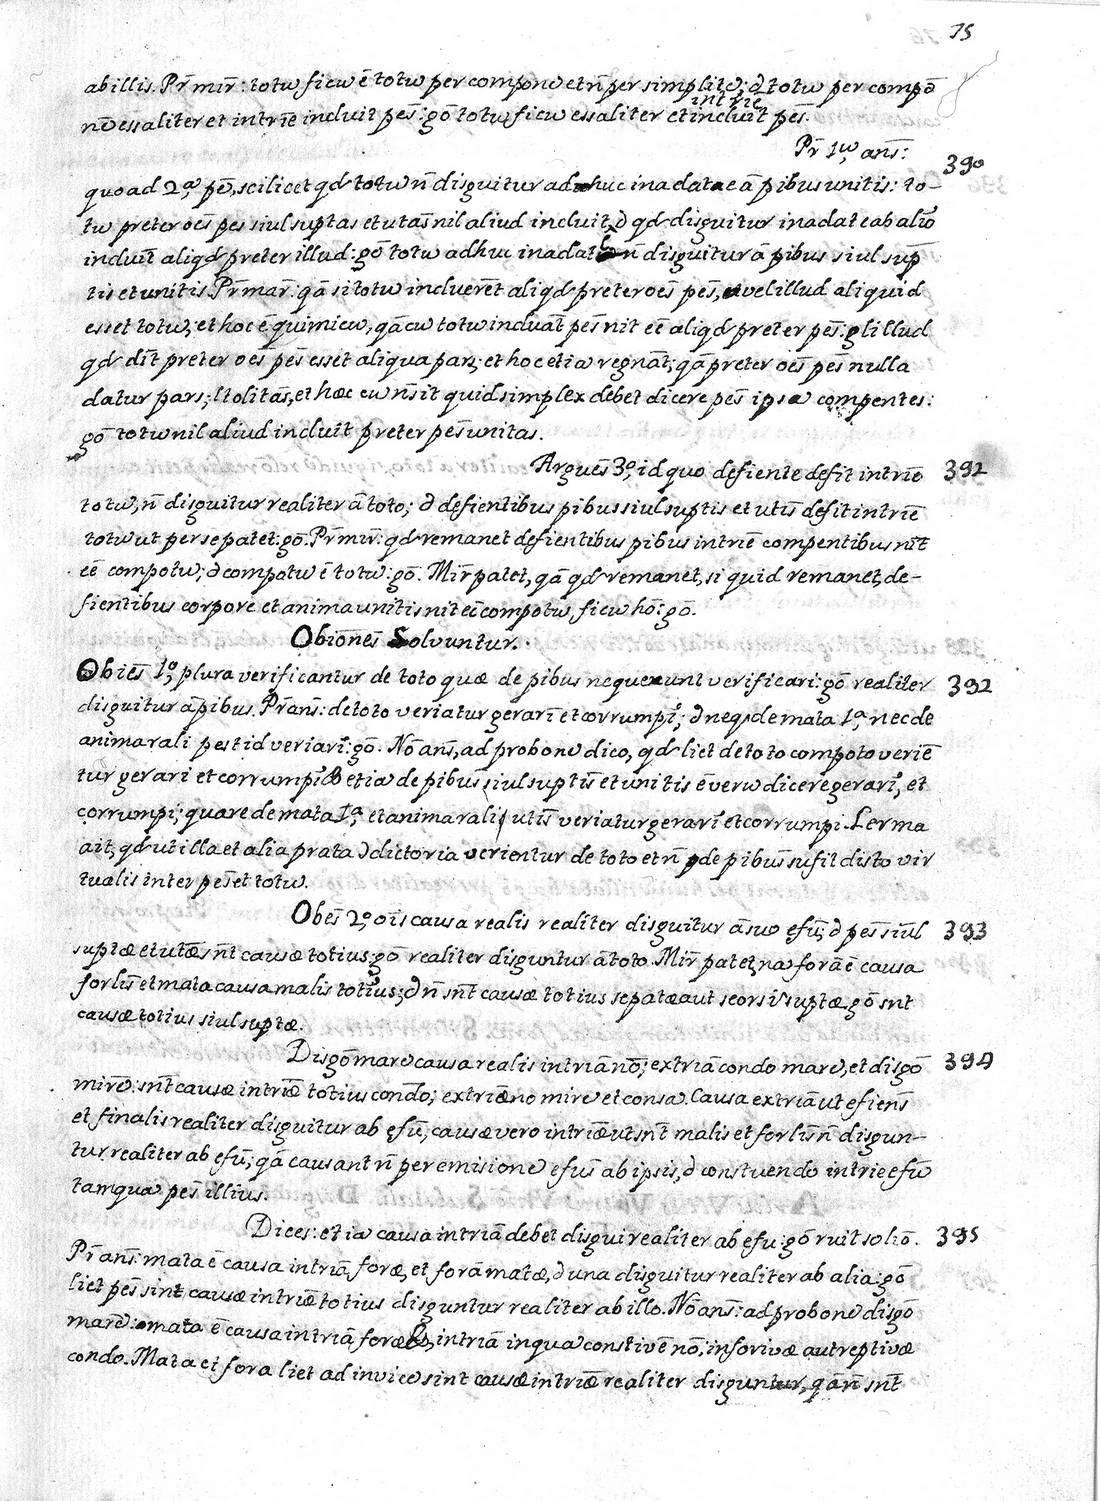 75
ab illis. Pr̄ mir̄: totu ficu ē totu per compone et n̄ per simplite; d totu per compo
intrīe
nē essaliter et intrīe incluit pes̄: gō totu ficu essaliter et incluit pes̄.
Pr̄ 1ᵘ ans̄: 390
quoad 2ᵃ pē, scilicet qd totu n̄ disguitur ad huc inadatae ā pibus unitis: to-
tu preter oes̄ pes siul suptas et utas̄ nil aliud incluit, d qd disguitur inadate ab alio
incluit̄ aliqd preter illud: gō totu adhuc inadate n̄ disguitur ā pibus siul sup
tis̄ et unitis. Pr̄ mar̄: qā si totu includeret̄ aliqd preter oes̄ pes̄, vel illud aliquid
esset totu, et hoc ē quimicu, qā cu totu induat̄ pes̄ nit eē aliqd preter pes̄: gl illud
qd dit̄ preter oes̄ pes̄ esset aliqua pars, et hoc etia regnat̄, qā preter oes̄ pes̄ nulla
datur pars; l tolitas̄, et hæc cu n̄ sit quid simplex debet dicere pes̄ ipsa compentes:
gō totu nil aliud incluit preter pes̄ unitas.
Argues̄ 3º, id quo defiente defit intriō 392
totu, n̄ disguitur realiter ā toto; d defientibus pibus siul suptis et utis̄ defit intriē
totu ut per se patet: gō. Pr̄ mir̄: qd remanet defientibus pibus intriē compentibus nit̄
eē compotu; d compotu ē totu: gō. Mir̄ patet, qā qd remanet, si quid remanet, de-
fientibus corpore et anima unitis nit eē compotu, ficu hō: gō.
Obiōnes̄ Solvuntur.
Obies̄ 1º, plura verificantur de toto quæ de pibus nequeunt verificari: gō realiter 392
disguitur ā pibus. Pr̄ ans̄: de toto veriatur gerari et corrumpi; d neq de mata 1ᵃ, nec de
anima rali pest id veriari: gō. Nō ans̄, ad probone dico, qd liet de toto compoto veriē
tur gerari et corrumpi etia de pibus siul suptis̄ et unitis ē veru dicere gerari, et
corrumpi; quare de mata 1ᵃ et anima rali utis̄ veriatur gerari et corrumpi. Lerma
ait, qd ut illa et alia prata ddictoria verientur de toto et n̄ de pibus sufit disto vir
tualis inter pes̄ et totu.
Obes̄ 2º, ois̄ causa realis realiter disguitur ā suo efū; d pes̄ siul 393
suptæ et utæ snt̄ causæ totius: gō realiter disguntur ā toto. Mir̄ patet, na forā ē causa
forlis̄ et mata causa malis totius; d n̄ snt̄ causæ totius sepatæ aut seorsi suptæ, gō snt
causæ totius siul suptæ.
Disgō mare causa realis intriā nō; extriā condo mare, et disgō 394
mirē: snt̄ causæ intriæ totius condo; extriæ no mire et consa. Causa extriā ut efiens̄
et finalis realiter disguitur ab efū; causæ vero intriæ ut snt̄ malis et forlis n̄ disgun-
tur realiter ab efū; qā causant n̄ per emisione efus̄ ab ipsis, d constuendo intrie efū
tamqua pes̄ illius.
Dices: etia causa intriā debet disgui realiter ab efu: gō ruit solio. 395
Pr̄ ans̄: mata ē causa intriā foræ, et forā matæ, d una disguitur realiter ab alia: gō
liet pes̄ sint causæ intriæ totius disguntur realiter ab illo. Nō ans̄: ad probone disgō
mare: mata ē causa intriā foræ, intriā inqua constive nō; inforivæ aut reptivæ
condo. Mata et fora liet ad invice sint causæ intriæ realiter disguntur, qā n̄ snt̄